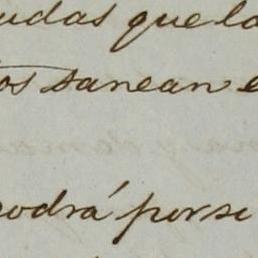 udas que la
os sanean e
podrá por si